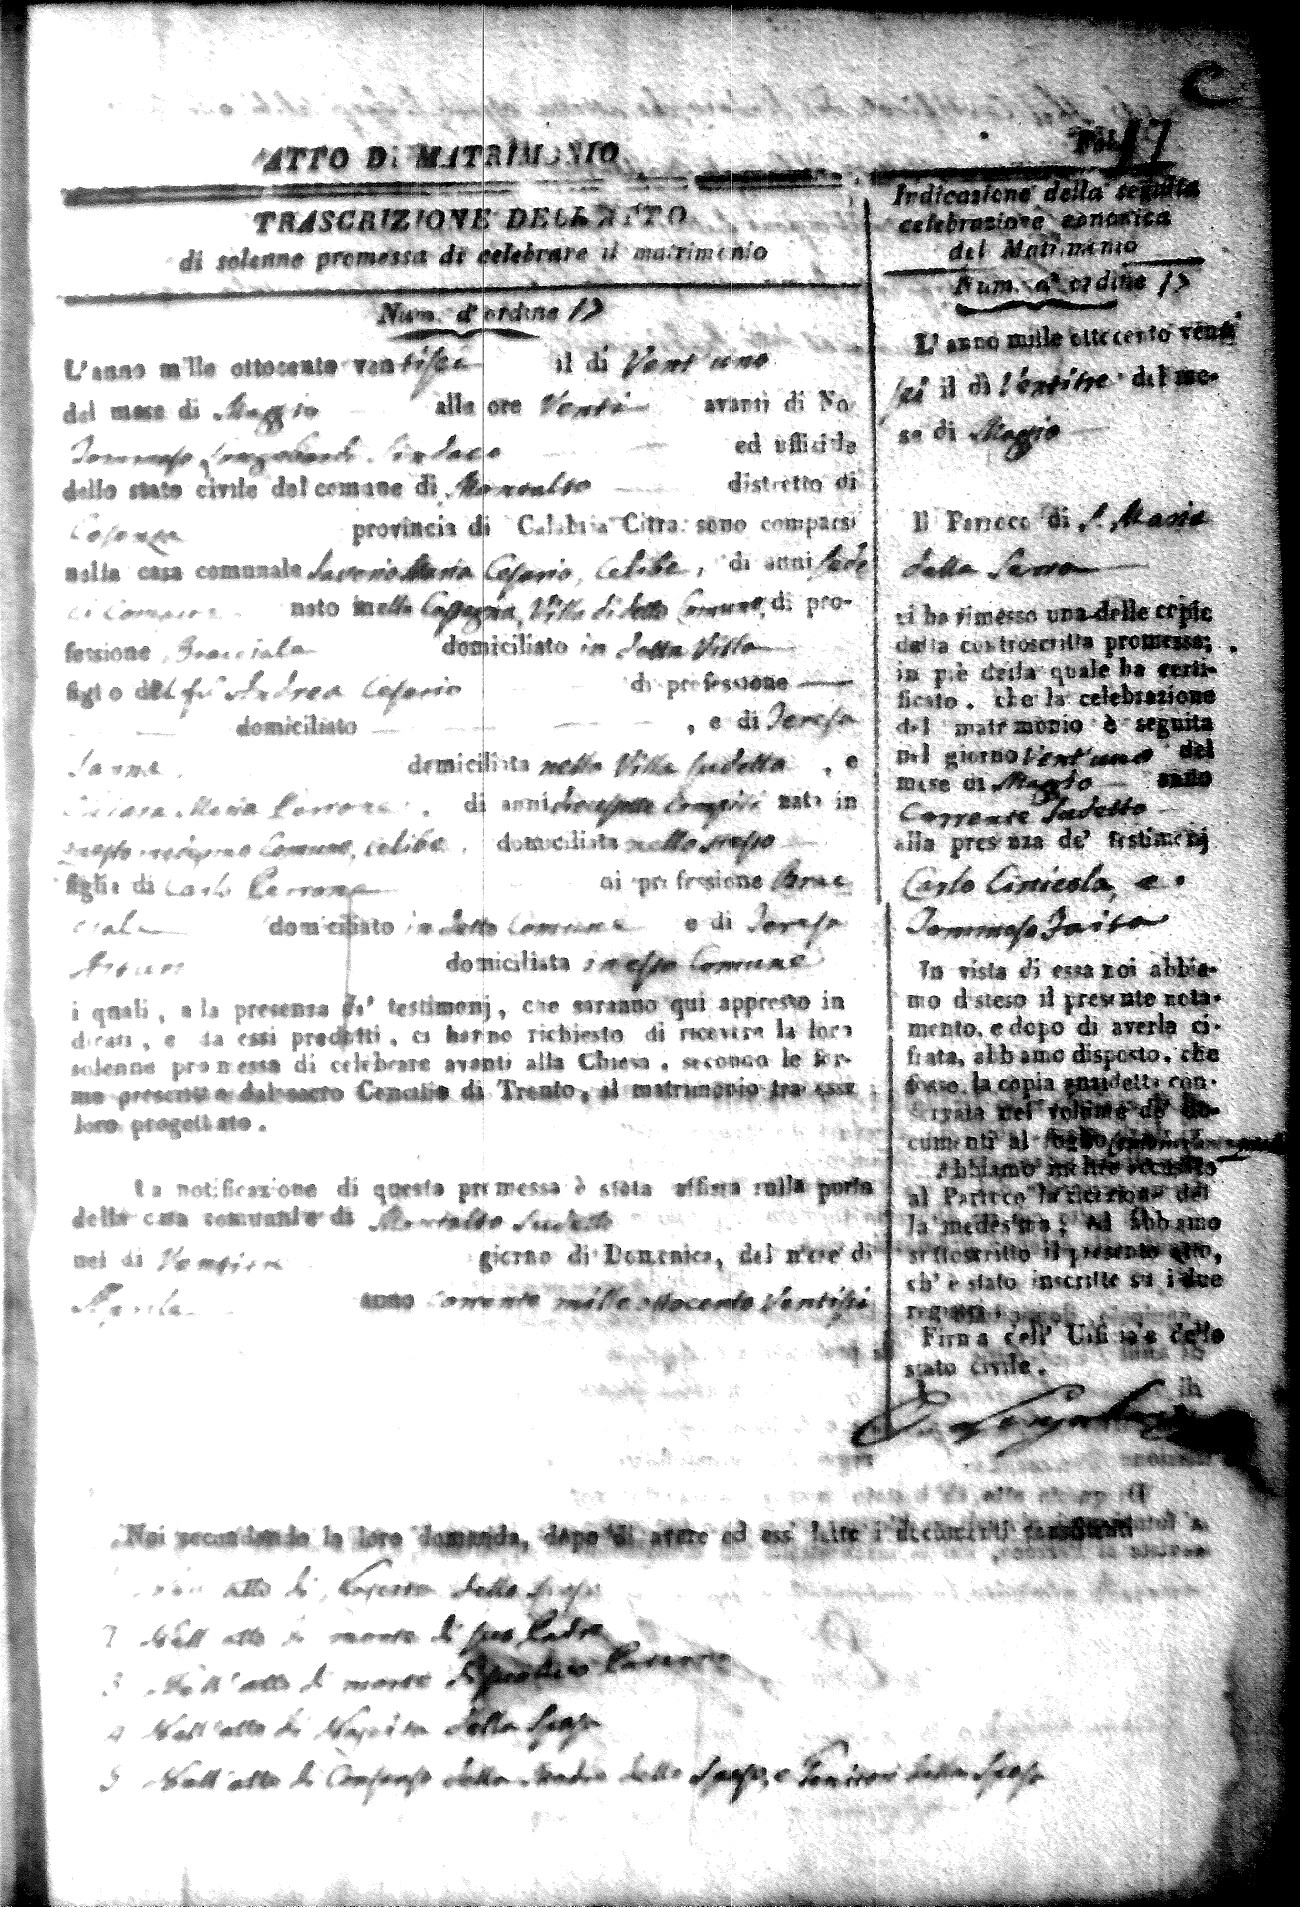 C
Fol. 17
ATTO DI MATRIMONIO
TRASCRIZIONE DELL'ATTO
di solenne promessa di celebrare il matrimonio
Num. d'ordine 17
L'anno mille ottocento ventisei il di Vent'uno
del mese di Maggio alle ore Venti avanti di Noi
Tommaso Longobardi Sindaco ed ufficiale
dello stato civile del comune di Montalto distretto di
Cosenza provincia di Calabria Citra sono comparsi
nella casa comunale Saverio Maria Cesario, celibe, di anni sede
ci Compiti nato in Villa di detto Comune, di pro-
fessione Bracciale domiciliato in detta Villa
figlio del fu Andrea Cesario di professione
domiciliato , e di Teresa
domiciliata nella Villa sudetta , e
Chiara Maria Perrone , di anni diecisette compiti nata in
questo medesimo Comune, celibe, domiciliata nello stesso
figlia di Carlo Perrone di professione Brac
ciale domiciliato in detto Comune e di Teresa
domiciliata in esso Comune
i quali, alla presenza de' testimonj, che saranno qui appresso in
dicati, e da essi prodotti, ci hanno richiesto di ricevere la loro
solenne promessa di celebrare avanti alla Chiesa, secondo le for-
me prescritte dal sacro Concilio di Trento, il matrimonio tra essi
loro progettato.
La notificazione di questa promessa è stata affissa sulla porta
della casa comunale di Montalto sudetto
nel di giorno di Domenica, del mese di
Aprile anno corrente mille ottocento Ventisei
Noi secondando la loro domanda, dopo di avere ad essi letto i documenti consistenti
atto di Nascita dello sposo
2 Nell'atto di morte di suo Padre
3 Nell'atto di morte di Paterno
4 Nell'atto di Nascita della Sposa
5 Nell'atto di Consenso della Madre dello Sposo, e Genitori della Sposa
Indicazione della seguita
celebrazione canonica
del Matrimonio
Num. d'ordine 17
L'anno mille ottocento venti
sei il dì Ventitre del me-
se di Maggio
Il Parroco di S. Maria
della Serra
ci ha rimesso una delle copie
della controscritta promessa;
in piè della quale ha certi-
ficato, che la celebrazione
del matrimonio è seguita
nel giorno Vent'uno del
mese di Maggio anno
Corrente sudetto
alla presenza de' testimonj
Carlo Ciniccola, e
Tommaso Faita
In vista di essa noi abbia-
mo disteso il presente nota-
mento, e dopo di averla ci-
frata, abbiamo disposto, che
fosse la copia anzidetta con-
servata nel volume de' do-
cumenti al foglio
Abbiamo inoltre accusato
al Parroco la ricezione del
la medesima; ed abbiamo
sottoscritto il presente atto,
ch'è stato inscritto su i due
registri.
Firma dell' Ufiziale dello
stato civile.